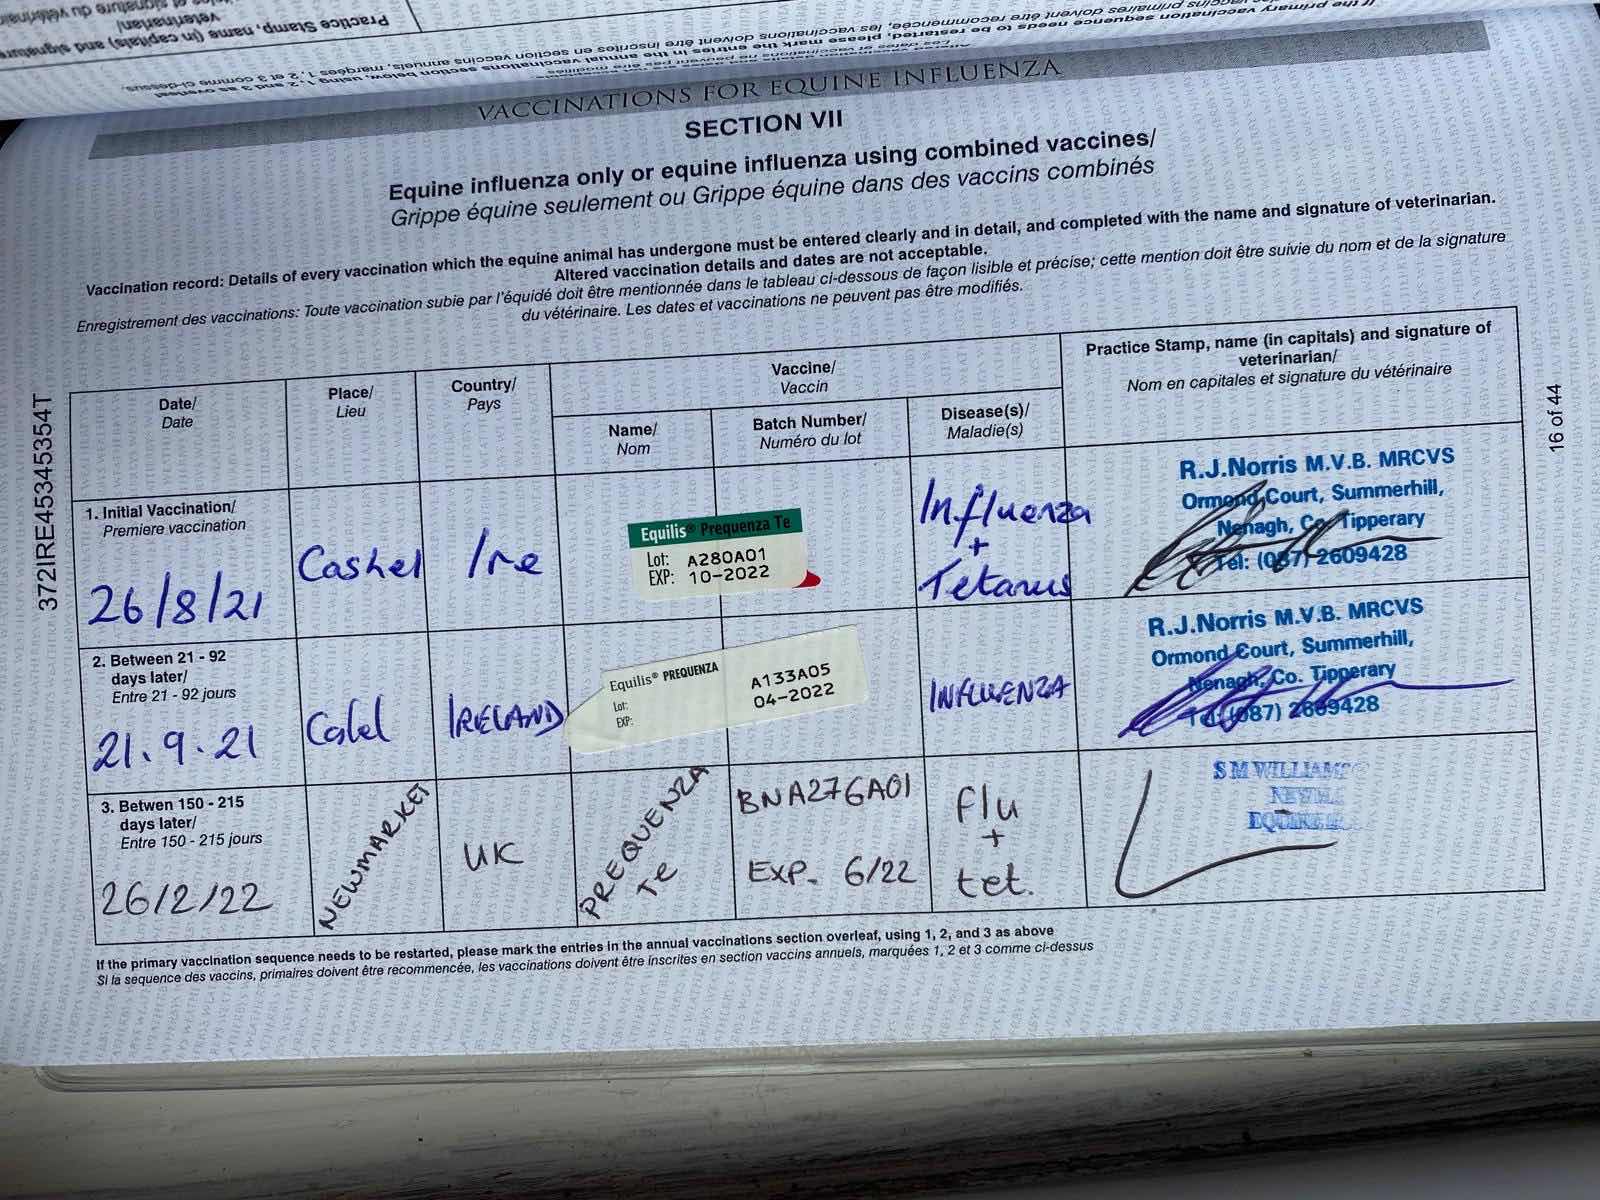 Practice Stamp, name (in capitals) and signature
veterinarian/
If the primary vaccination sequence needs to be restarted, please mark the entries in the annual vaccinations section below, using 1, 2 and 3 as overleaf
vaccins primaires doivent être recommencée, les vaccinations doivent être inscrites en section vaccins annuels, marquées 1, 2 et 3 comme ci-dessus.
VACCINATIONS FOR EQUINE INFLUENZA
SECTION VII
Equine influenza only or equine influenza using combined vaccines/
Grippe équine seulement ou Grippe équine dans des vaccins combinés
Vaccination record: Details of every vaccination which the equine animal has undergone must be entered clearly and in detail, and completed with the name and signature of veterinarian.
Altered vaccination details and dates are not acceptable.
Enregistrement des vaccinations: Toute vaccination subie par l'équidé doit être mentionnée dans le tableau ci-dessous de façon lisible et précise; cette mention doit être suivie du nom et de la signature
du vétérinaire. Les dates et vaccinations ne peuvent pas être modifiés.
372IRE45345354T
16 of 44
Date/
Date
Place/
Lieu
Country/
Pays
Vaccine/
Vaccin
Name/
Nom
Batch Number/
Numéro du lot
Disease(s)/
Maladie(s)
Practice Stamp, name (in capitals) and signature of
veterinarian/
Nom en capitales et signature du vétérinaire
1. Initial Vaccination/
Premiere vaccination
26/8/21
Cashel
Ire
Equilis® Prequenza Te
Lot: A280A01
EXP: 10-2022
Influenza
+
Tetanus
R.J.Norris M.V.B. MRCVS
Ormond Court, Summerhill,
Nenagh, Co. Tipperary
Tel: (087) 2609428
2. Between 21 - 92
days later/
Entre 21 - 92 jours
21.9.21
IRELAND
Equilis® PREQUENZA
Lot: A133A05
EXP: 04-2022
INFLUENZA
R.J.Norris M.V.B. MRCVS
Ormond Court, Summerhill,
Nenagh, Co. Tipperary
Tel: (087) 2609428
3. Betwen 150 - 215
days later/
Entre 150 - 215 jours
26/2/22
NEWMARKET
UK
PREQUENZA
Te
BNA276A01
EXP. 6/22
flu
+
tet.
S M WILLIAMS
If the primary vaccination sequence needs to be restarted, please mark the entries in the annual vaccinations section overleaf, using 1, 2, and 3 as above
Si la sequence des vaccins, primaires doivent être recommencée, les vaccinations doivent être inscrites en section vaccins annuels, marquées 1, 2 et 3 comme ci-dessus